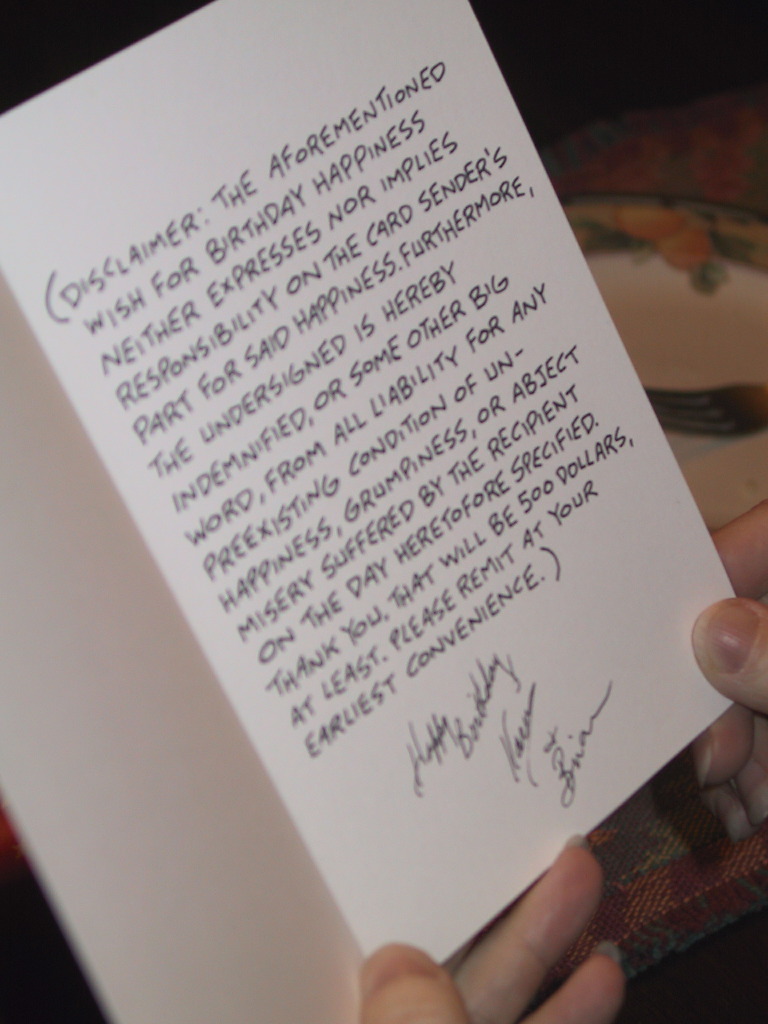 (DISCLAIMER: THE AFOREMENTIONED
WISH FOR BIRTHDAY HAPPINESS
NEITHER EXPRESSES NOR IMPLIES
RESPONSIBILITY ON THE CARD SENDER'S
PART FOR SAID HAPPINESS. FURTHERMORE,
THE UNDERSIGNED IS HEREBY
INDEMNIFIED, OR SOME OTHER BIG
WORD, FROM ALL LIABILITY FOR ANY
PREEXISTING CONDITION OF UN-
HAPPINESS, GRUMPINESS, OR ABJECT
MISERY SUFFERED BY THE RECIPIENT
ON THE DAY HERETOFORE SPECIFIED.
THANK YOU. THAT WILL BE 500 DOLLARS,
AT LEAST. PLEASE REMIT AT YOUR
EARLIEST CONVENIENCE.)
Happy
Birthday,
Karen
+
Brian